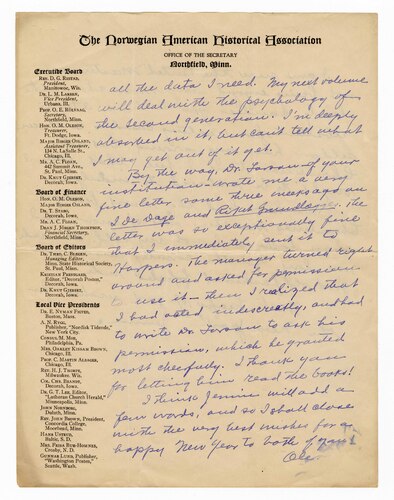 The Norwegian American Historical Association
OFFICE OF THE SECRETARY
Northfield, Minn.
Executive Board
REV. D. G. RISTAD,
President,
Manitowoc, Wis.
DR. L. M. LARSON,
Vice President,
Urbana, Ill.
PROF. O. E. RÖLVAAG,
Secretary,
Northfield, Minn.
HON. O. M. OLESON,
Treasurer,
Ft. Dodge, Iowa.
MAJOR BIRGER OSLAND,
Assistant Treasurer,
134 N. LaSalle St.,
Chicago, Ill.
MR. A. C. FLOAN,
St. Paul, Minn.
DR. KNUT GJERSET,
Decorah, Iowa.
Board of Finance
HON. O. M. OLESON,
MAJOR BIRGER OSLAND,
DR. T. STABO,
Decorah, Iowa.
MR. A. C. FLOAN,
DEAN J. JÖRGEN THOMPSON,
Financial Secretary,
Northfield, Minn.
Board of Editors
DR. THEO. C. BLEGEN,
Managing Editor,
Minn. State Historical Society,
St. Paul, Minn.
KRISTIAN PRESTGARD,
Editor, "Decorah Posten,"
Decorah, Iowa.
DR. KNUT GJERSET,
Decorah, Iowa.
Local Vice Presidents
Boston, Mass.
A. N. RYGG,
Publisher, "Nordisk Tidende,"
New York City.
CONSUL M. MOE,
Philadelphia, Pa.
MRS. OAKLEY BROWN,
Chicago, Ill.
PROF. C. MARTIN ALSAGER,
Chicago, Ill.
REV. H. J. THORPE,
Milwaukee, Wis.
COL. CHR. BRANDT,
Decorah, Iowa.
DR. G. T. LEE, Editor,
"Lutheran Church Herald,"
Minneapolis, Minn.
JOHN NORBORG,
Duluth, Minn.
REV. JOHN BROWN, President,
Concordia College,
Moorhead, Minn.
HANS USTRUD,
Baltic, S. D.
MRS. FRIDA BUE-HOMNES,
Crosby, N. D.
GUNNAR LUND, Publisher,
"Washington Posten,"
Seattle, Wash.
all the data I need. My next volume
will deal with the psychology of
the second generation. I'm deeply
absorbed in it, but can't tell what
I may get out of it yet.
By the way, Dr. Forson of your
institution – wrote me a very
fine letter some three weeks ago on
I De Dage and Riket Grundlæg. The
letter was so exceptionally fine
that I immediately sent it to
Harpers. The manager turned right
around and asked for permission
to use it – then I realized that
I had acted indiscreetly, and had
to write Dr. Forson to ask his
permission, which he granted
most cheerfully. I thank you
for letting him read the books!
I think Jennie will add a
few words, and so I shall close
with the very best wishes for a
happy New Year to both of you!
Ole.